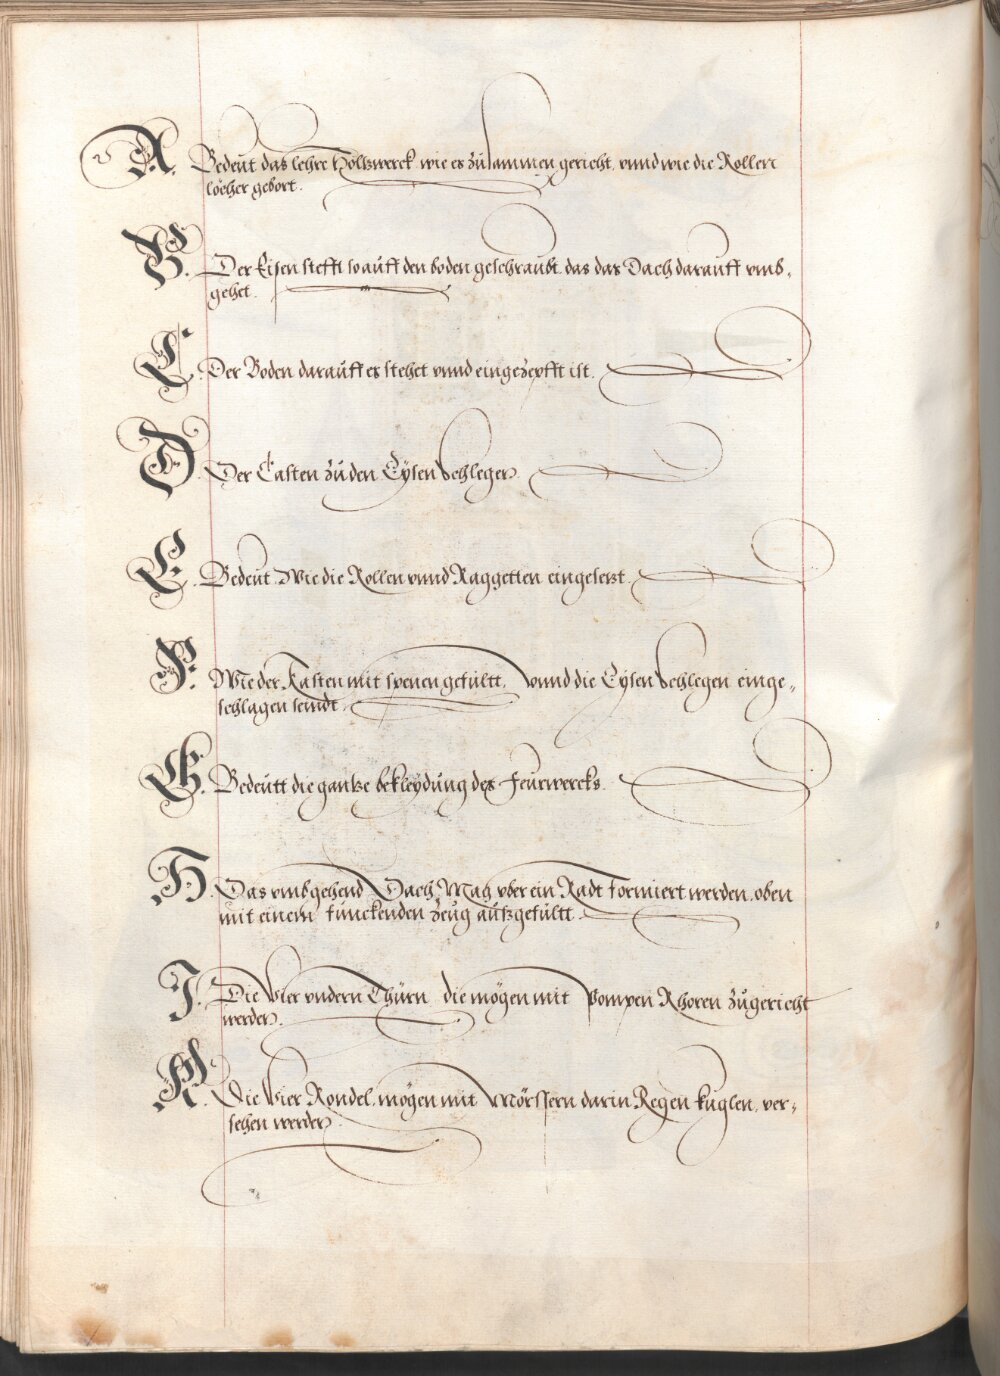 A. Bedeut das lehre Holtzwerck wie es zusammen gericht, vnnd wie die Rollen
löcher gebort.
B. Der Eisen stefft so auff den boden geschraubt, das das Dach darauff vmb,
gehet.
C. Der Boden darauff es stehet vnnd eingezepfft ist.
D. Der Casten zu den Eysen Schleger.
E. Bedeut Wie die Rollen vnnd Raggetten eingesetzt.
F. Wie der Kasten mit spenen gefültt, vnnd die Eysen Schlegen einge„
schlagen seindt.
G. Bedeutt die gantze bekleydung des Feurwercks.
H. Das vmbgehend Dach, Mag vber ein Radt formiert werden, oben
mit einem funckenden zeug aussgefültt.
I. Die Vier vndern Thürn, die mögen mit Pompen Rhoren zugericht
werden.
K. Die Vier Rondel, mögen mit Mörssern darin Regen kuglen, ver„
sehen werden.